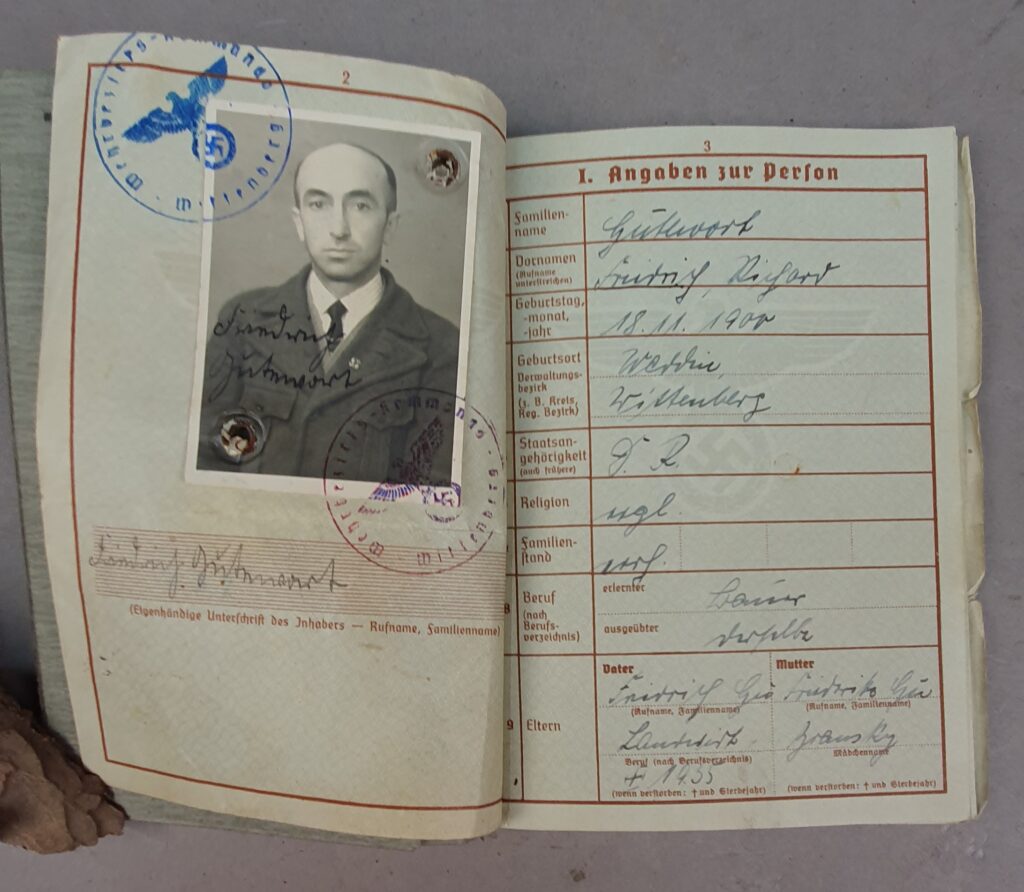 Wehrbezirks-Kommando Wittenberg
2
Friedrich
Gutewort
Wehrbezirks-Kommando Wittenberg
Friedrich Gutewort
(Eigenhändige Unterschrift des Inhabers — Rufname, Familienname)
3
I. Angaben zur Person
Familien-
name
Gutewort
Vornamen
(Rufname
unterstreichen)
Friedrich, Richard
Geburtstag,
-monat,
-jahr
18. 11. 1900
Geburtsort
Verwaltungs-
bezirk
(z. B. Kreis,
Reg. Bezirk)
Weddin,
Wittenberg
Staatsan-
gehörigkeit
(auch frühere)
D. R.
Religion
evgl.
Familien-
stand
verh.
8
Beruf
(nach
Berufs-
verzeichnis)
erlernter
Bauer
ausgeübter
derselbe
9
Eltern
Vater
Friedrich Gu
(Rufname, Familienname)
Landwirt
Beruf (nach Berufsverzeichnis)
(wenn verstorben: † und Sterbejahr)
Mutter
Friederike Gu
(Rufname, Familienname)
Mädchenname
(wenn verstorben: † und Sterbejahr)